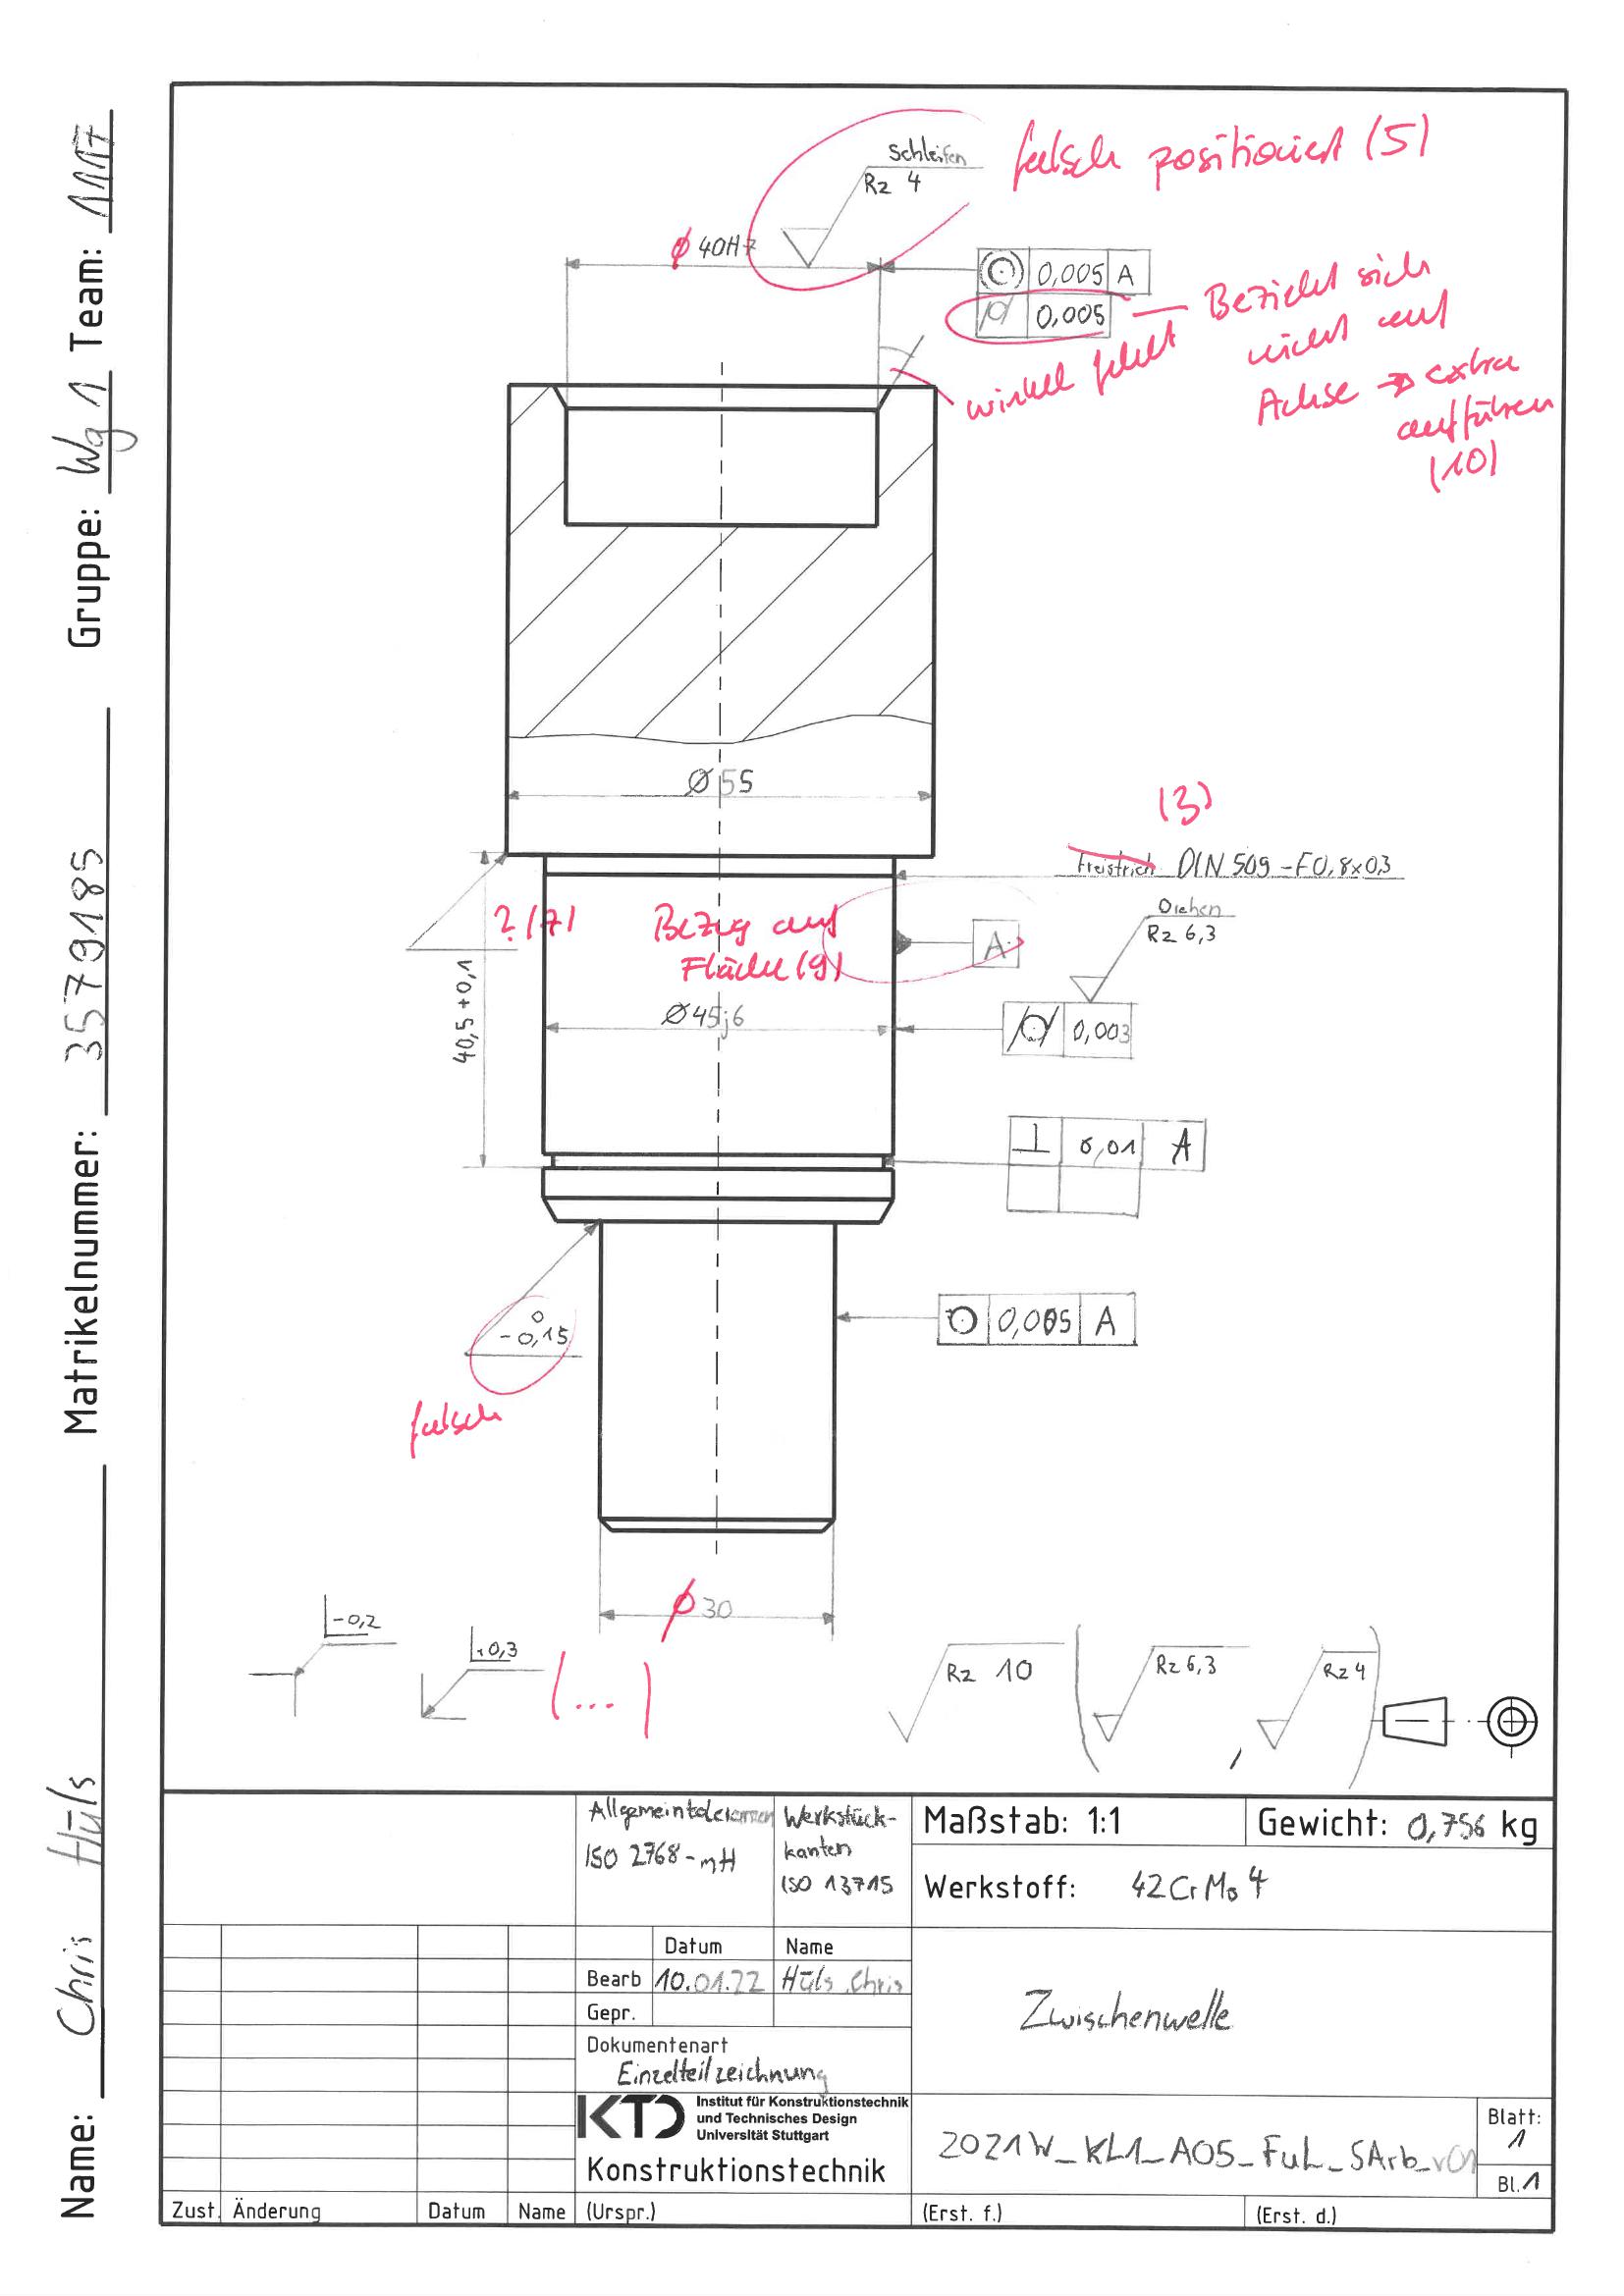 Name: Chris Hüls Matrikelnummer: 3579185 Gruppe: Wg 1 Team: 1117
Schleifen
Rz 4
falsch positioniert (5)
⌀ 40H7
0,005 A
0,005
Bezieht sich
nicht auf
Achse → extra
aufführen
(10)
winkel fehlt
⌀ 55
(3)
Freistrich DIN 509 - F0,8x0,3
Drehen
Rz 6,3
? (7)
Bezug auf
Fläche (9)
A
40,5 +0,1
⌀ 45j6
0,003
⊥ 0,01 A
0
-0,15
falsch
0,005 A
⌀ 30
-0,2
+0,3
(...)
Rz 10 ( Rz 6,3 , Rz 4 )
Allgemeintoleranzen
ISO 2768 - mH
Werkstück-
kanten
ISO 13715
Maßstab: 1:1
Gewicht: 0,756 kg
Werkstoff: 42CrMo4
Datum Name
Bearb 10.01.22 Hüls, Chris
Gepr.
Dokumentenart
Einzelteilzeichnung
Zwischenwelle
KTD Institut für Konstruktionstechnik
und Technisches Design
Universität Stuttgart
Konstruktionstechnik
2021W_KL1_A05_FuL_SArb_v01
Blatt:
1
Bl. 1
Zust. Änderung Datum Name (Urspr.) (Erst. f.) (Erst. d.)